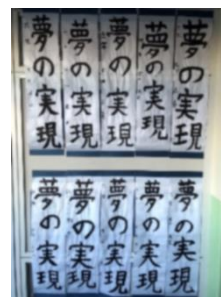 夢の実現
夢の実現
夢の実現
夢の実現
夢の実現
夢の実現
夢の実現
夢の実現
夢の実現
夢の実現